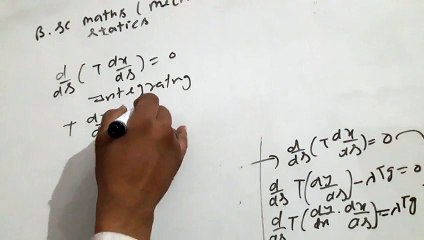 B.sc maths (mec
statics
d/ds (T dx/ds) = 0
Integrating
T d
→ d/ds (T dx/ds) = 0
d/ds T(dy/ds) - λTg = 0
d/ds T(dy/dx . dx/ds) = λTg